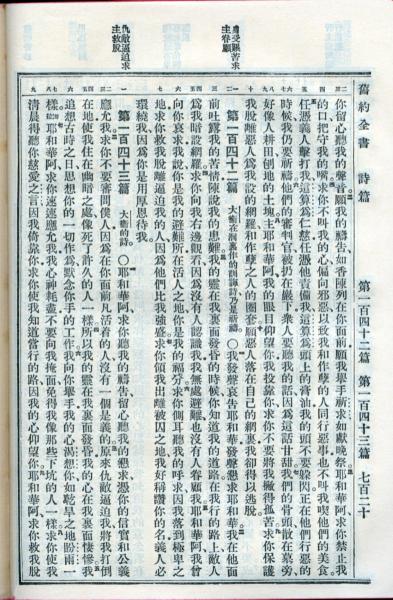 舊約全書 詩篇 第一百四十二篇 第一百四十三篇 七百二十
身受艱苦求
主眷顧
仇敵逼迫求
主救脫
你留心聽我的聲音願我的禱告如香陳列在你面前願我舉手祈求如獻晚祭耶和華阿求你禁止我
的口把守我的嘴求你不叫我的心偏向邪惡以致我和作孽的人同行惡事也不叫我喫他們的美食
任憑義人擊打我這算為仁慈任憑他責備我這算為頭上的膏油我的頭不要躲閃正在他們行惡的
時候我仍要祈禱他們的審判官被扔在巖下衆人要聽我的話因為這話甘甜我們的骨頭散在墓旁
好像人耕田刨地的土塊主耶和華阿我的眼目仰望你我投靠你求你不要將我撇得孤苦求你保護
我脫離惡人為我設的網羅和作孽之人的圈套願惡人落在自己的網裏我卻得以逃脫
第一百四十二篇 大衛在洞裏作的訓誨詩乃是祈禱 〇我發聲哀告耶和華發聲懇求耶和華我在他面
前吐露我的苦情陳說我的患難我的靈在我裏面發昏的時候你知道我的道路在我行的路上敵人
為我暗設網羅求你向我右邊觀看因為沒有人認識我我無處避難也沒有人眷顧我耶和華阿我曾
向你哀求我說你是我的避難所在活人之地你是我的福分求你側耳聽我的呼求因我落到極卑之
地求你救我脫離逼迫我的人因為他們比我強盛求你領我出離被囚之地我好稱讚你的名義人必
環繞我因為你是用厚恩待我
第一百四十三篇 大衛的詩 〇耶和華阿求你聽我的禱告留心聽我的懇求憑你的信實和公義
應允我求你不要審問僕人因為在你面前凡活着的人沒有一個是義的原來仇敵逼迫我將我打倒
在地使我住在幽暗之處像死了許久的人一樣所以我的靈在我裏面發昏我的心在我裏面悽慘我
追想古時之日思想你的一切作為默念你手的工作我向你舉手我的心渴想你如乾旱之地盼雨一
樣耶和華阿求你速速應允我我心神耗盡不要向我掩面免得我像那些下坑的人一樣求你使我
清晨得聽你慈愛之言因我倚靠你求你使我知道當行的路因我的心仰望你耶和華阿求你救我脫